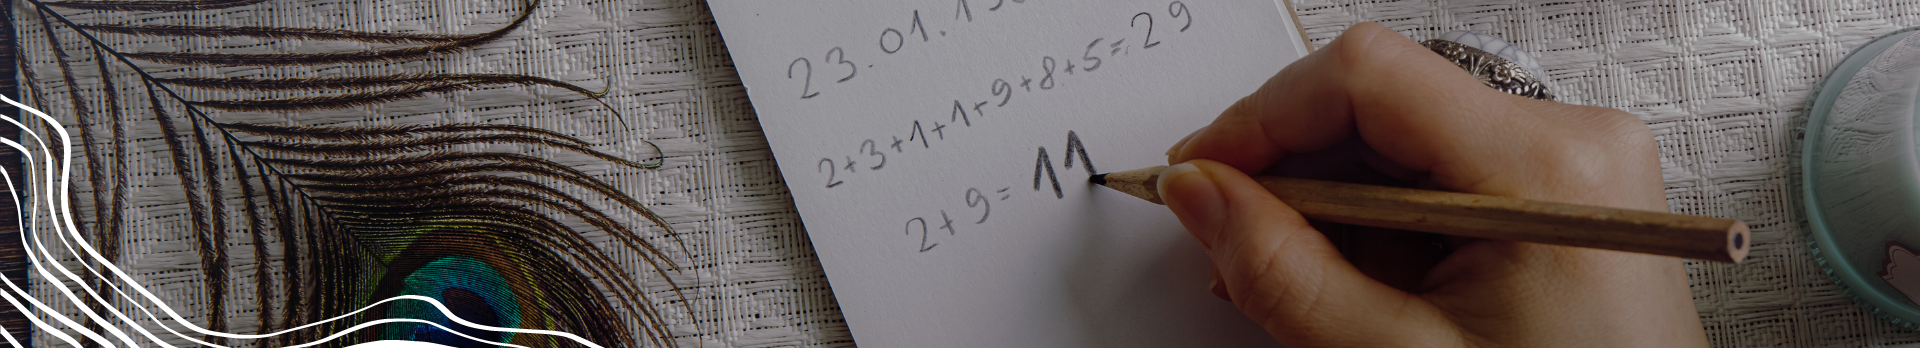 23.01.19
2+3+1+1+9+8+5=29
2+9=11